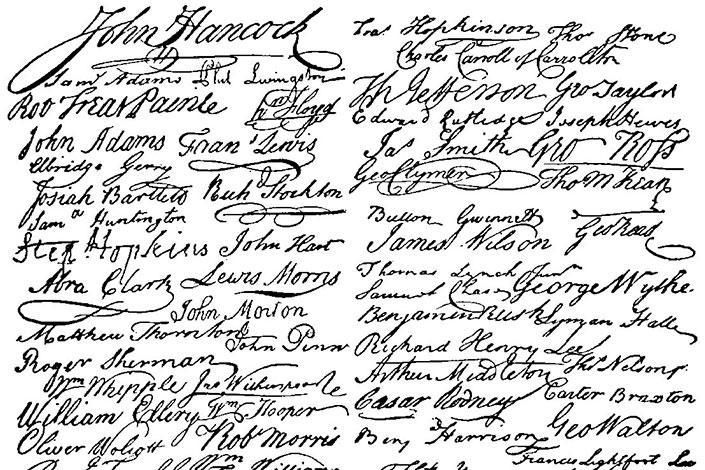 John Hancock
Sam Adams Phil Livingston
Rob Treat Paine Wm Floyd
John Adams Frans Lewis
Elbridge Gerry
Josiah Bartlett Richd Stockton
Saml Huntington
Step Hopkins John Hart
Abra Clark Lewis Morris
John Morton
Matthew Thornton John Penn
Roger Sherman
Wm Whipple Jno Witherspoon
William Ellery Wm Hooper
Oliver Wolcott Robt Morris
Wm Williams
Fras Hopkinson Thos Stone
Charles Carroll of Carrollton
Th Jefferson Geo Taylor
Edward Rutledge Joseph Hewes
Jas Smith Geo Ross
Geo Clymer Tho M Kean
Button Gwinnett
James Wilson Geo Read
Thomas Lynch Junr
Samuel Chase George Wythe
Benjamin Rush Lyman Hall
Richard Henry Lee
Arthur Middleton Thos Nelson jr
Cæsar Rodney Carter Braxton
Benj Harrison Geo Walton
Francis Lightfoot Lee